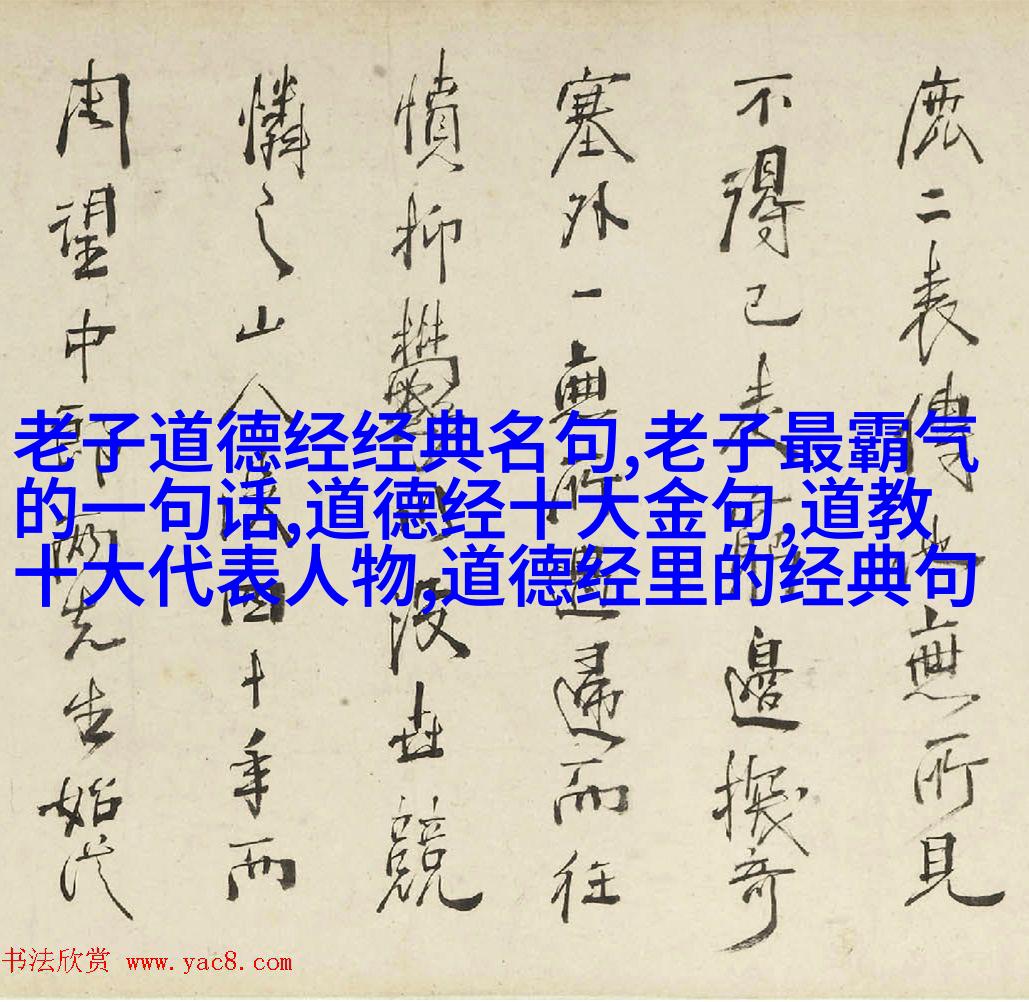 二表傳也無所見
不得已走邊撥奇
塞外一無所遇歸而往
憤抑鬱沒世競
憐之山人沒十年而
周望中郎兩先生始從
老子道德经经典名句,老子最霸气
的一句话,道德经十大金句,道教
十大代表人物,道德经里的经典句
书法欣赏 www.yac8.com